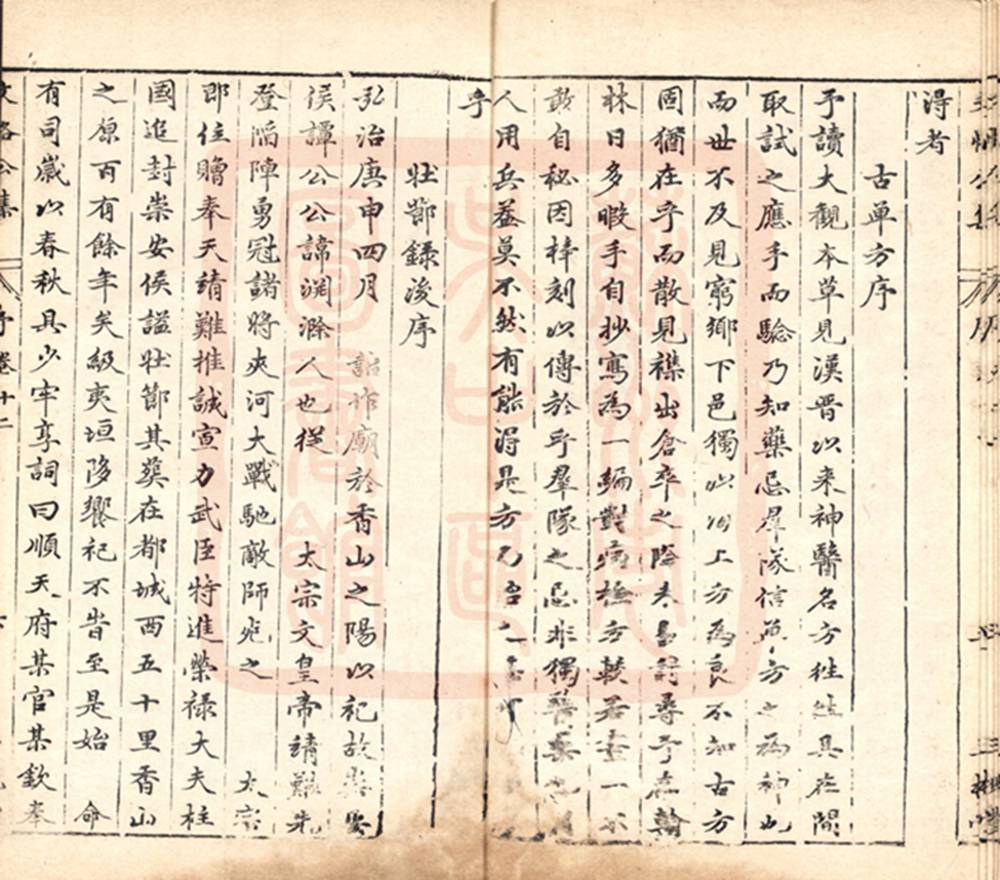 得者
古單方序
予讀大觀本草見漢晉以來神醫名方徃徃具在間
取試之應手而驗乃知藥忌羣隊信單方之為神也
而世不及見窮鄉下邑獨以上方為良不知古方
固猶在乎而散見襍出倉卒之際尋予在翰
林日多暇手自抄寫為一編對病檢方較若畫一不
敢自秘因梓刻以傳於乎羣隊之忌非獨醫藥也
人用兵葢莫不然有能得是方
乎
壯節錄後序
弘治庚申四月 詔作廟於香山之陽以祀故崇安
侯譚公公諱淵滁人也從 太宗文皇帝靖難先
登陷陣勇冠諸將夾河大戰馳敵師死之 太宗
即位贈奉天靖難推誠宣力武臣特進榮祿大夫柱
國追封崇安侯謚壯節其塟在都城西五十里香山
之原百有餘年矣級夷垣陊饗祀不眚至是始 命
有司歲以春秋具少牢享詞曰順天府某官某欽奉
序卷十二